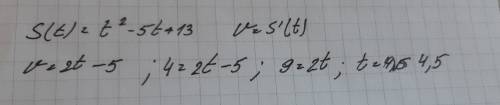 S(t) = t² - 5t + 13 v = S'(t)
v = 2t - 5 ; 4 = 2t - 5 ; 9 = 2t ; t = 4,5